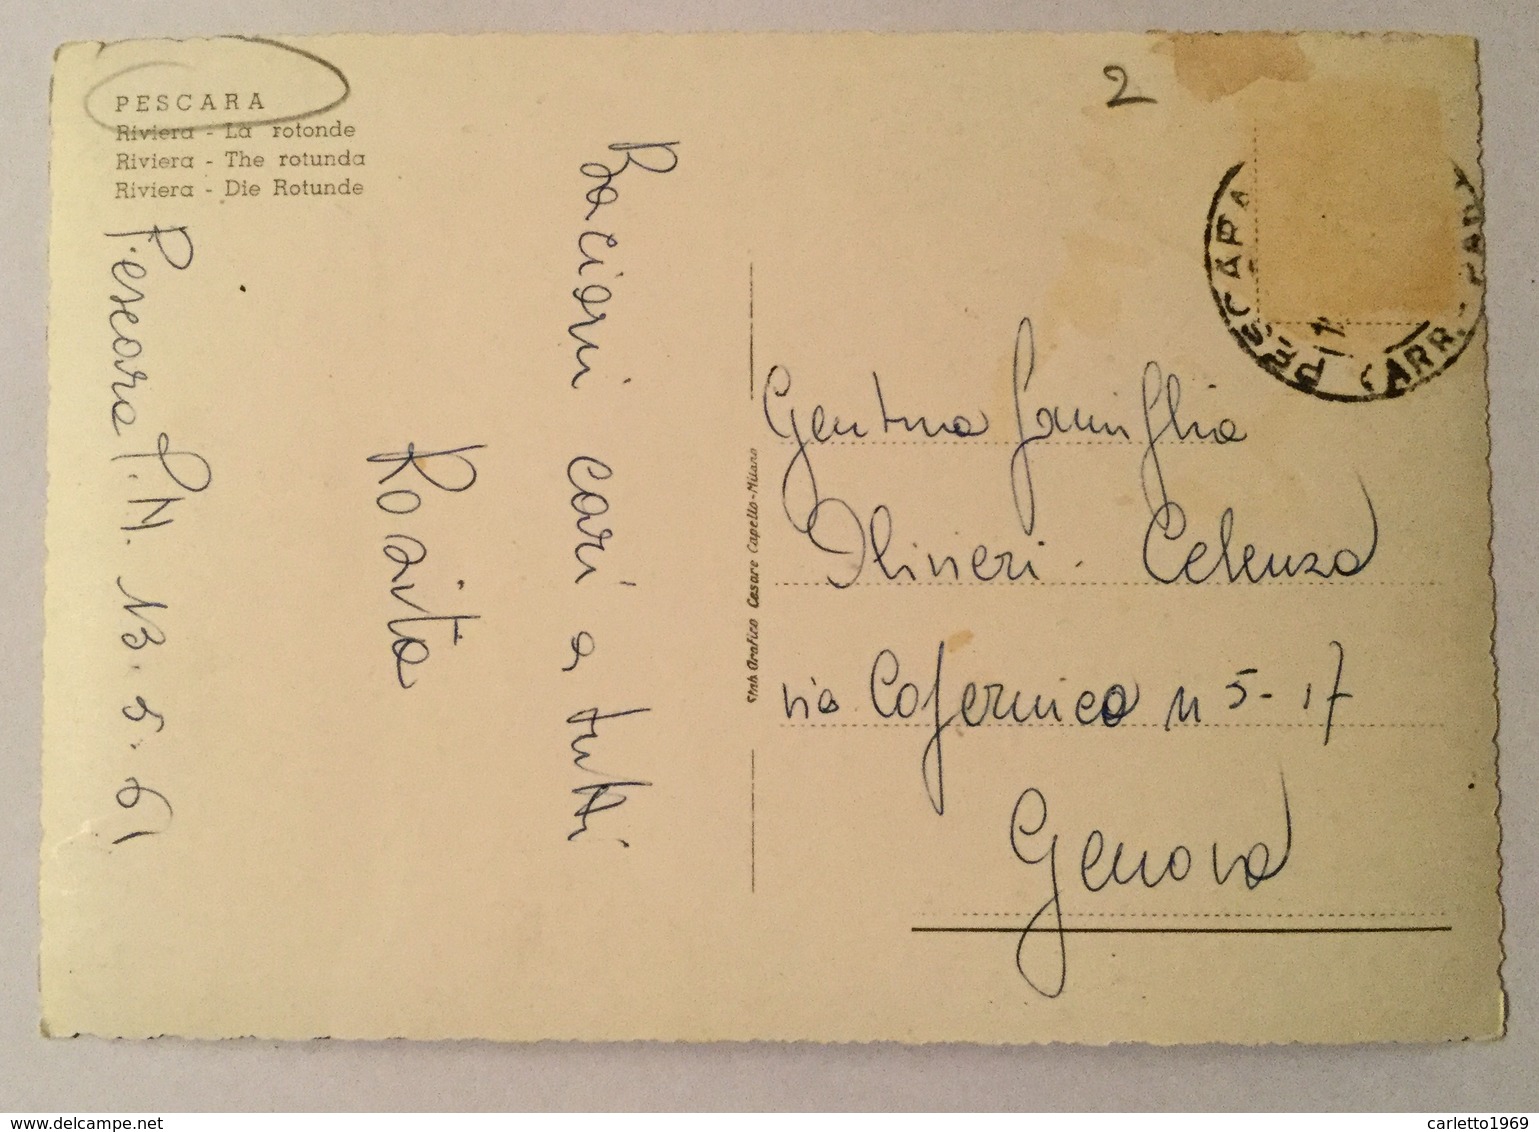 PESCARA
Riviera - La rotonde
Riviera - The rotunda
Riviera - Die Rotunde
2
Bacioni cari a tutti
Rosita
Pescara P.N. 13.5.61
Stab Grafico Cesare Capello-Milano
PESCARA
ARR.
Gent.ma famiglia
Olivieri - Celenza
via Copernico n 5-17
Genova
www.delcampe.net
carletto1969